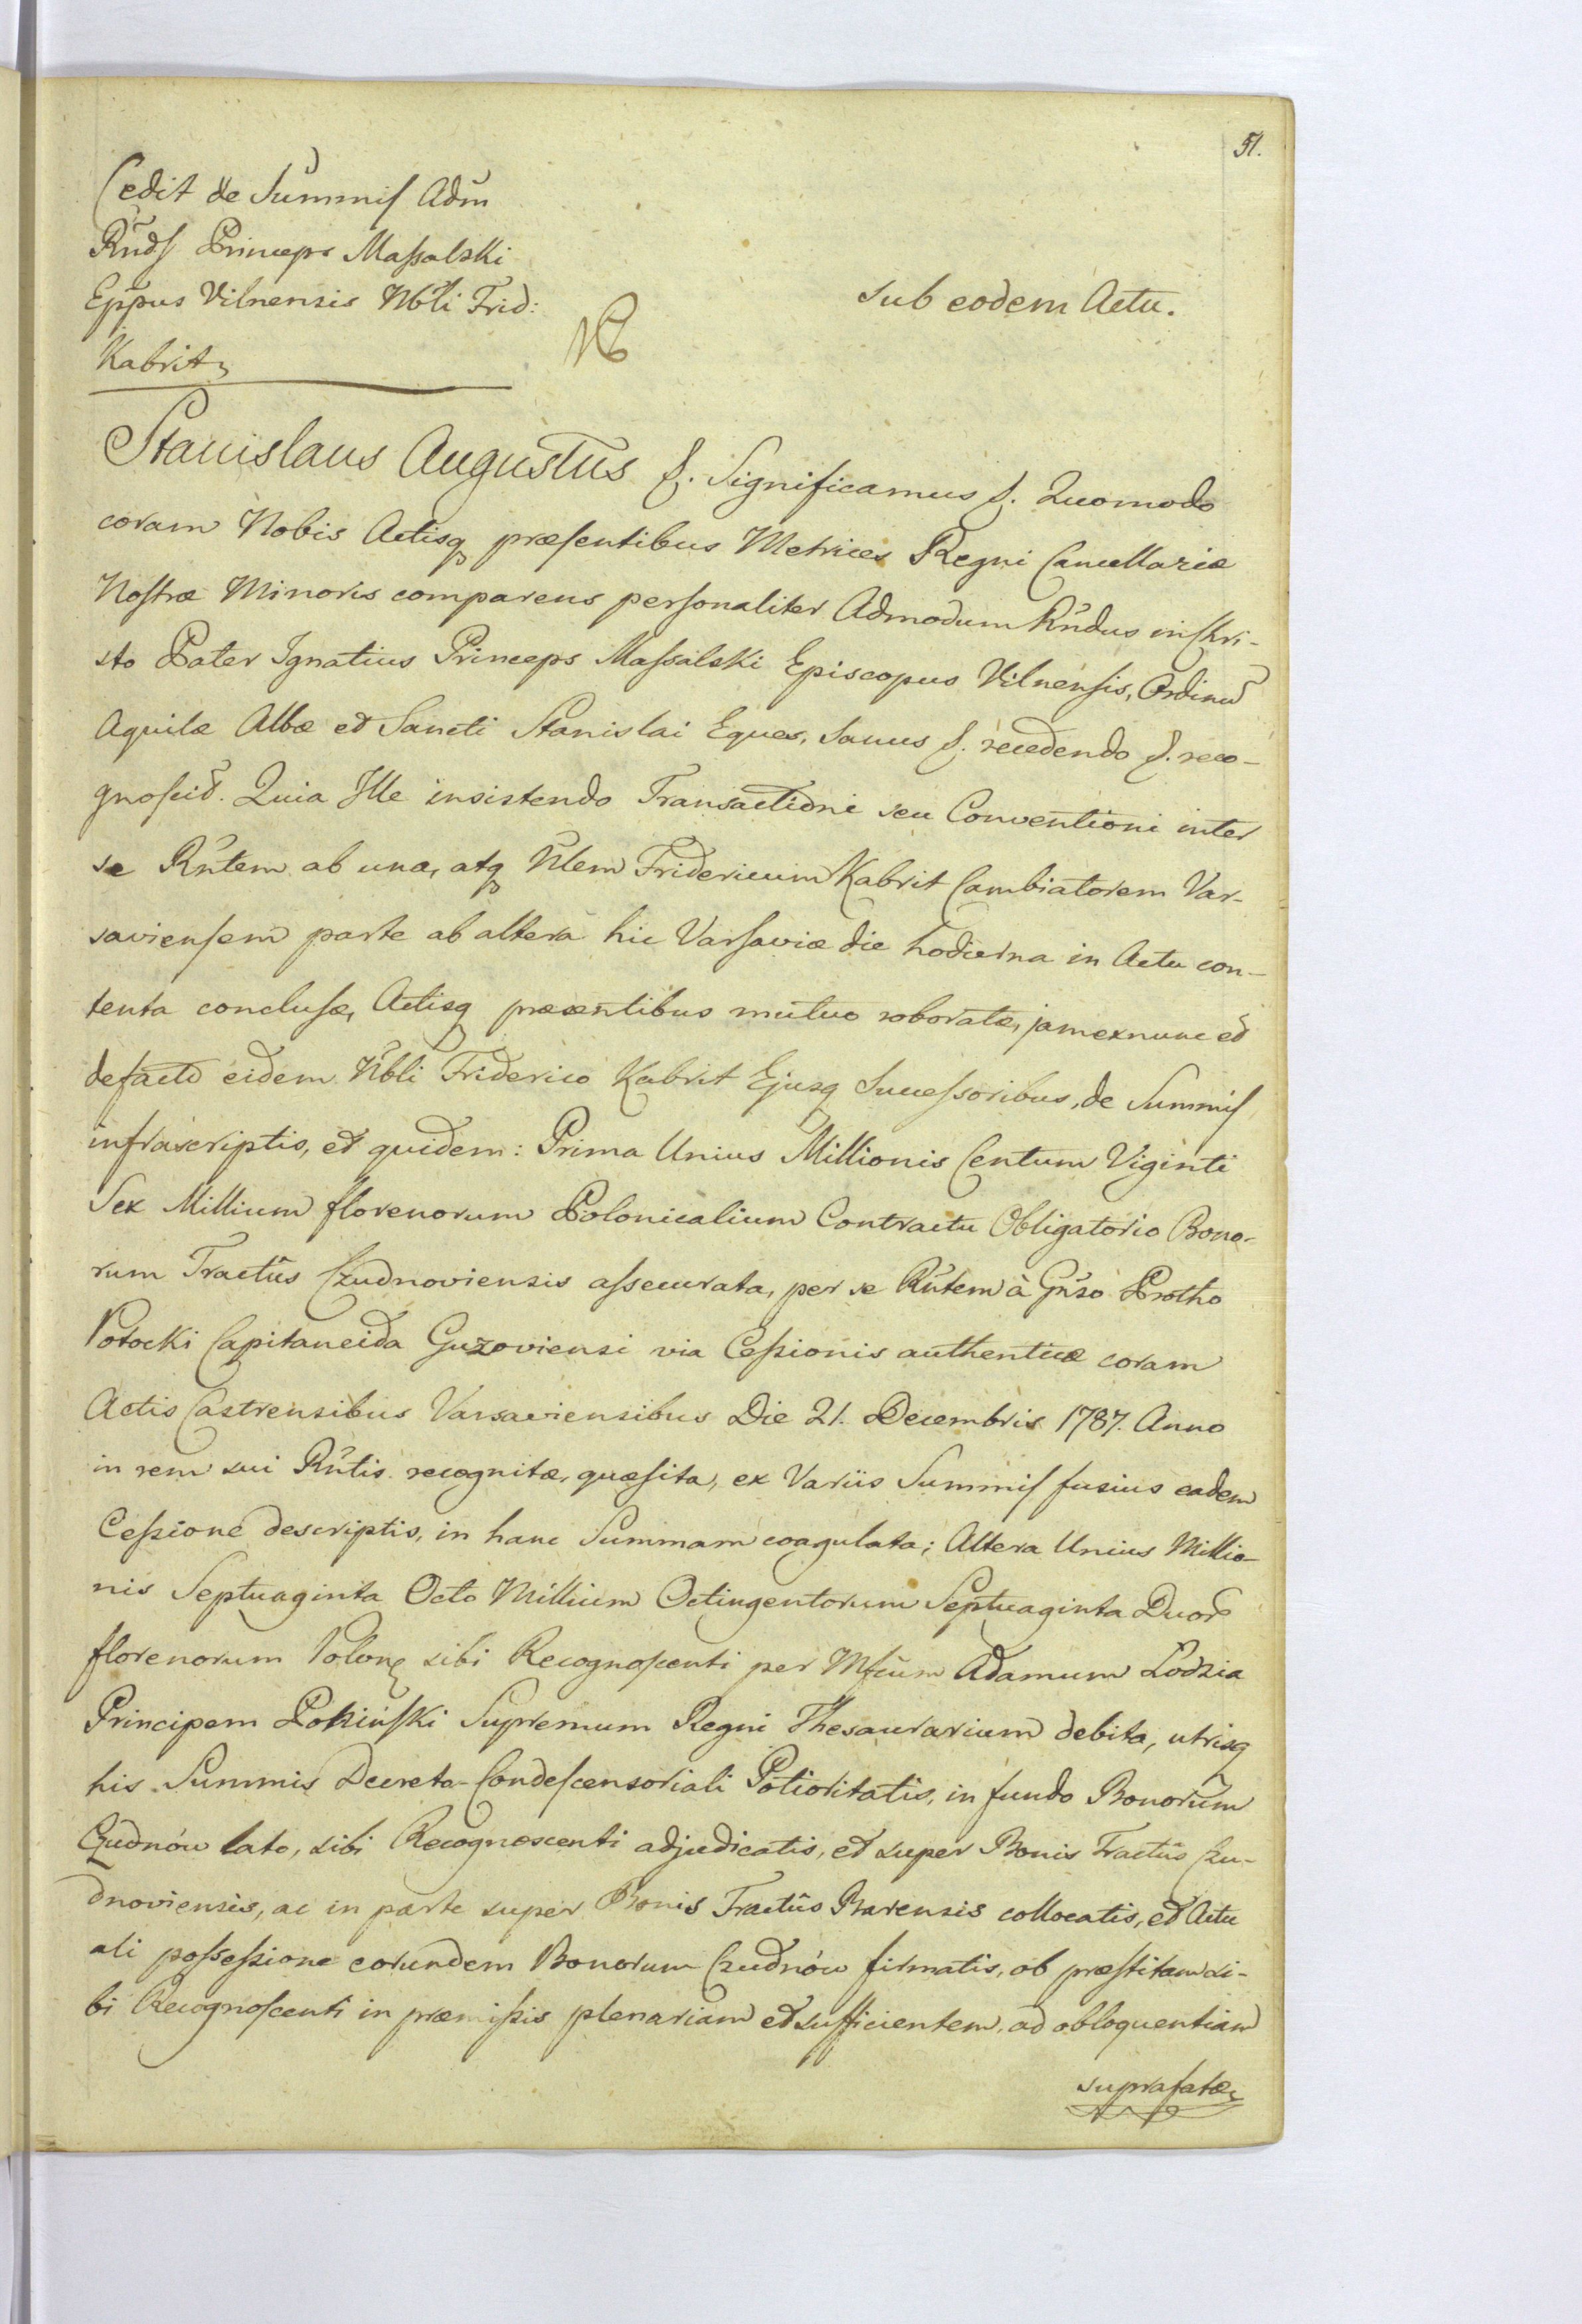 51.
Cedit de Summis Adm̃
Rñds Princeps Massalski
Epp̃us Vilnensis Nb̃li Frid:
Kabrit
sub eodem Actu.
NB
Stanislaus Augustus &. Significamus &. Quomodo
coram Nobis Actisq præsentibus Metrices Regni Cancellariæ
Nostræ Minoris comparens personaliter Admodum Rñdus in Chri-
sto Pater Ignatius Princeps Massalski Episcopus Vilnensis, Ordinũ
Aquilæ Albæ et Sancti Stanislai Eques, sanus &. recedendo &. reco-
gnoscit. Quia Ille insistendo Transactioni seu Conventioni inter
se Rñtem ab una, atq Ñlem Fridericum Kabrit Cambiatorem Var-
saviensem parte ab altera hic Varsaviæ die hodierna in Actu con-
tenta conclusæ, Actisq præsentibus mutuo roboratæ, jam exnunc et
defacto eidem Nb̃li Friderico Kabrit Ejusq Successoribus, de Summis
infrascriptis, et quidem: Prima Unius Millionis Centum Viginti
Sex Millium florenorum Polonicalium Contractu Obligatorio Bono-
rum Tractûs Czudnoviensis assecurata, per se Rñtem à Gñso Protho
Potocki Capitaneida Guzoviensi via Cessionis authenticæ coram
Actis Castrensibus Varsaviensibus Die 21. Decembris 1787. Anno
in rem sui Rñtis recognitæ, quæsita, ex Variis Summis fusius eadem
Cessione descriptis, in hanc Summam coagulata; Altera Unius Millio-
nis Septuaginta Octo Millium Octingentorum Septuaginta Duor̃
florenorum Polon sibi Recognoscenti per Mfcum Adamum Lodzia
Principem Poniński Supremum Regni Thesaurarium debita, utrisq
his Summis Decreto Condescensoriali Potioritatis, in fundo Bonorum
Czudnów lato, sibi Recognoscenti adjudicatis, et super Bonis Tractûs Czu-
dnoviensis, ac in parte super Bonis Tractûs Barensis collocatis, et Actu
ali possessione eorundem Bonorum Czudnów firmatis, ob præstitam si-
bi Recognoscenti in præmissis plenariam et sufficientem, ad obloquentiam
suprafatæ